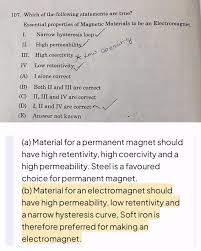 107. Which of the following statements are true?
Essential properties of Magnetic Materials to be an Electromagnet
I. Narrow hysteresis loop
II. High permeability
III. High coercivity Low coercivity
IV. Low retentivity
(A) I alone correct
(B) Both II and III are correct
(C) II, III and IV are correct
(D) I, II and IV are correct
(E) Answer not known
(a) Material for a permanent magnet should
have high retentivity, high coercivity and a
high permeability. Steel is a favoured
choice for permanent magnet.
(b) Material for an electromagnet should
have high permeability, low retentivity and
a narrow hysteresis curve, Soft iron is
therefore preferred for making an
electromagnet.